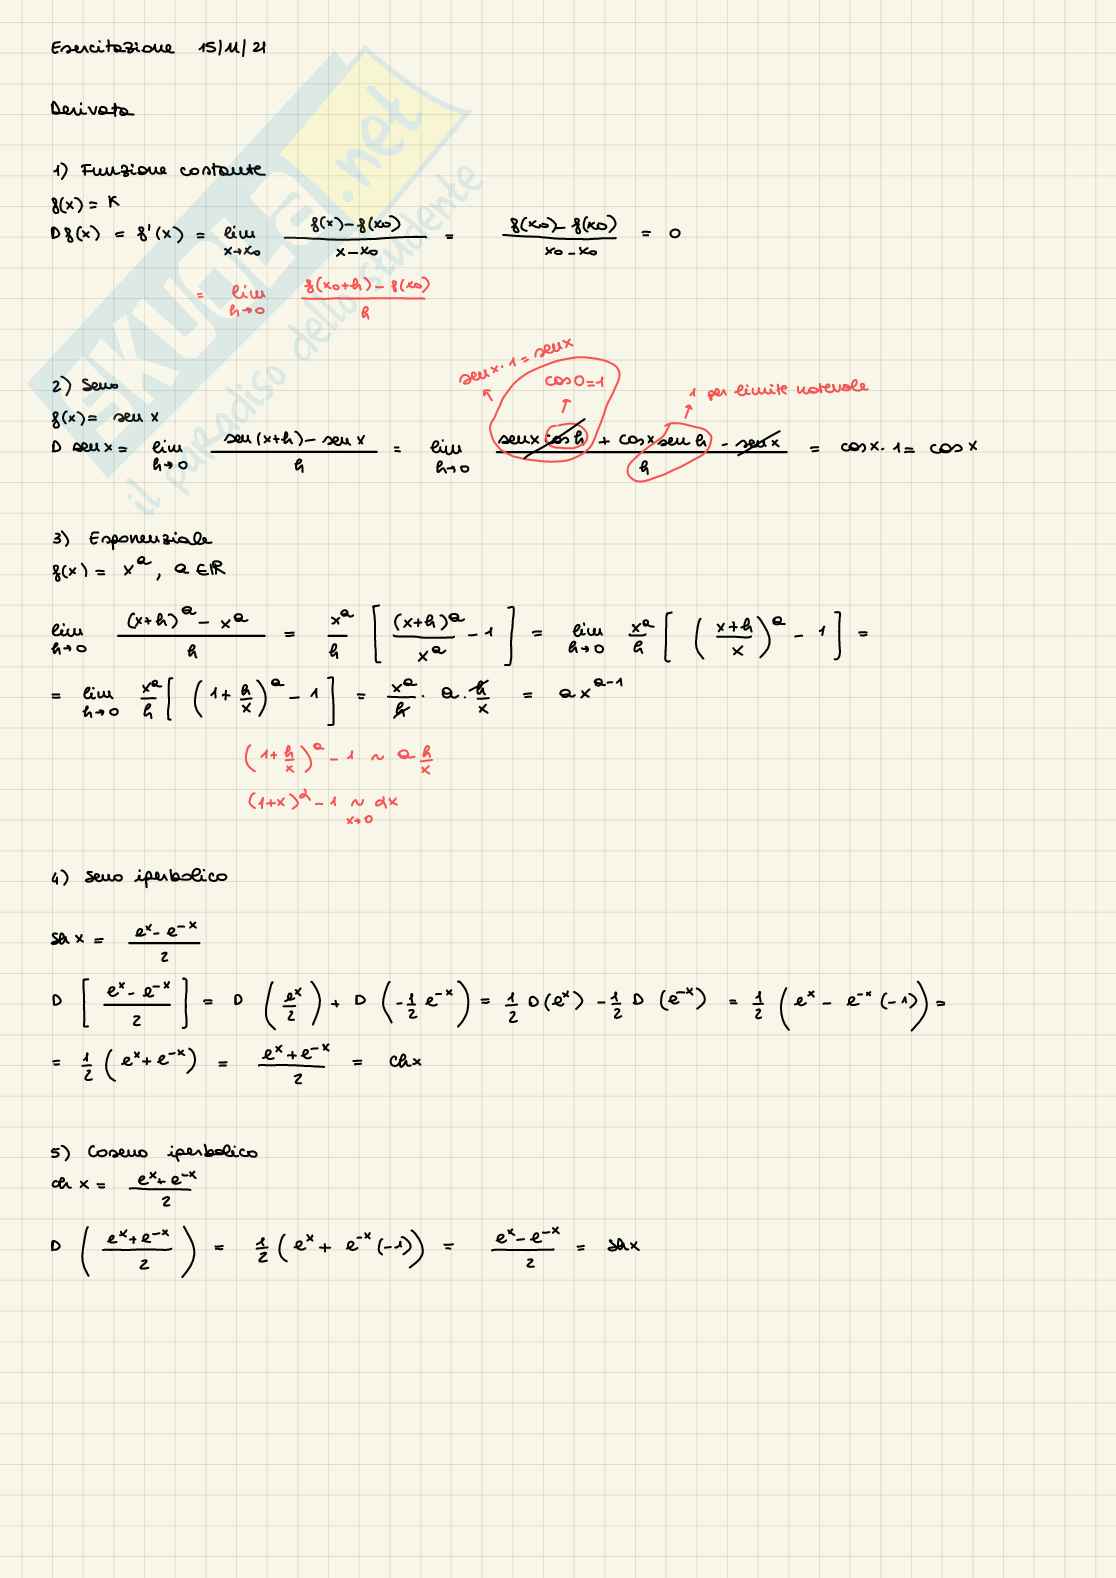 Esercitazione 15/11/21
Derivata
1) Funzione costante
f(x) = K
D f(x) = f'(x) = lim x→x0 (f(x)-f(x0))/(x-x0) = (f(x0)-f(x0))/(x0-x0) = 0
= lim h→0 (f(x0+h)-f(x0))/h
senx·1=senx
cos0=1
1 per limite notevole
2) Seno
f(x)= sen x
D senx= lim h→0 (sen(x+h)-senx)/h = lim h→0 (senx cosh + cosx senh - senx)/h = cosx·1= cosx
3) Esponenziale
f(x)= x^a, a∈ℝ
lim h→0 ((x+h)^a - x^a)/h = x^a/h [(x+h)^a/x^a - 1] = lim h→0 x^a/h [((x+h)/x)^a - 1] =
= lim h→0 x^a/h [(1+h/x)^a - 1] = x^a/h · a · h/x = ax^(a-1)
(1+h/x)^a - 1 ~ a h/x
(1+x)^α - 1 ~ x→0 αx
4) Seno iperbolico
Sh x = (e^x - e^-x)/2
D [(e^x - e^-x)/2] = D (e^x/2) + D (-1/2 e^-x) = 1/2 D(e^x) - 1/2 D (e^-x) = 1/2 (e^x - e^-x(-1)) =
= 1/2 (e^x + e^-x) = (e^x + e^-x)/2 = Chx
5) Coseno iperbolico
ch x = (e^x + e^-x)/2
D ((e^x + e^-x)/2) = 1/2 (e^x + e^-x(-1)) = (e^x - e^-x)/2 = shx
SKUOLA.net
il paradiso dello studente